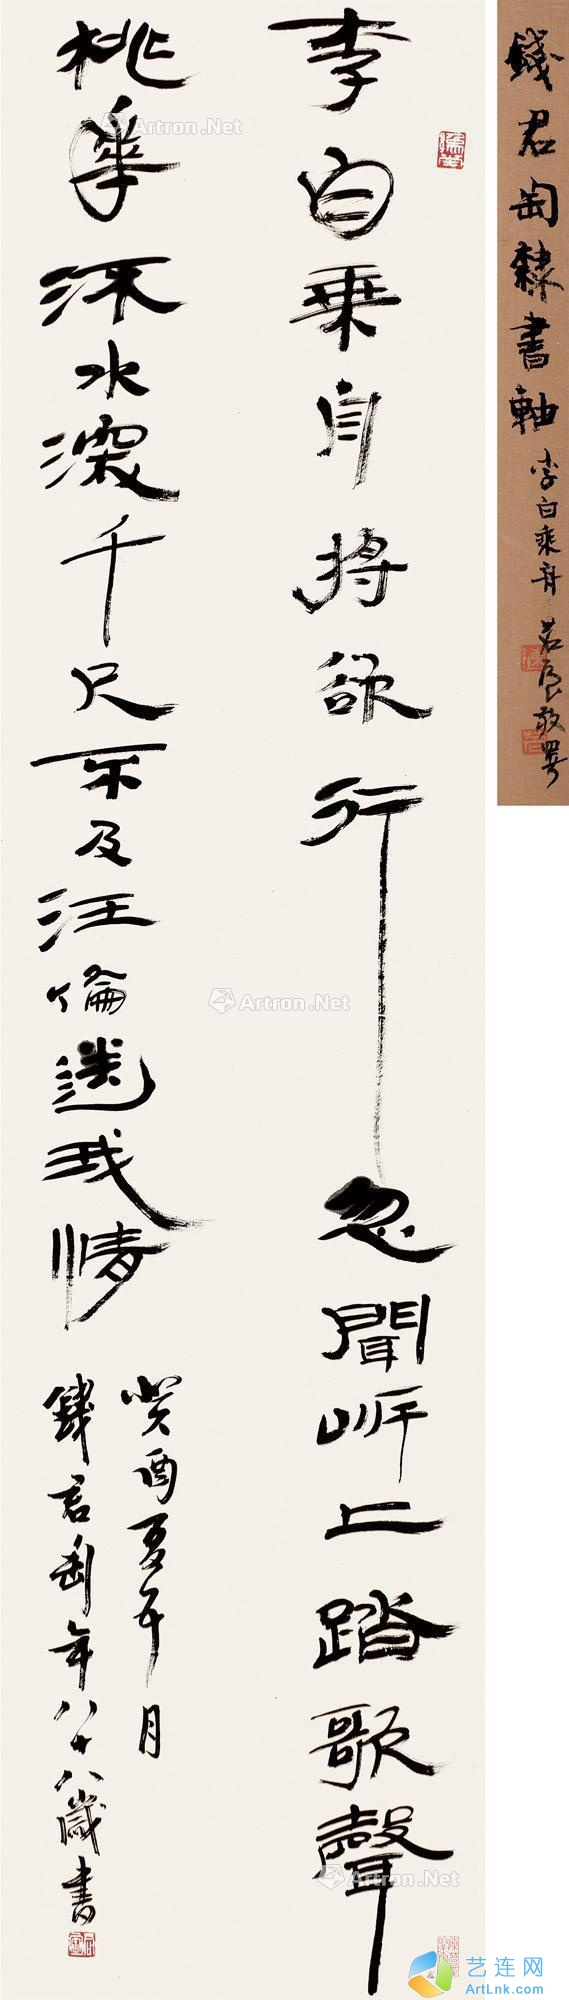 錢君匋隸書軸
李白乘舟 茗屋敬署
李白乗舟將欲行忽聞岸上踏歌聲
桃華潭水深千尺不及汪倫送我情
癸酉夏五月
錢君匋年八十八歲書
Artron.Net
Artron.Net
Artron.Net
Artron.Net
Artron.Net
Artron.Net
艺连网
ArtLnk.com